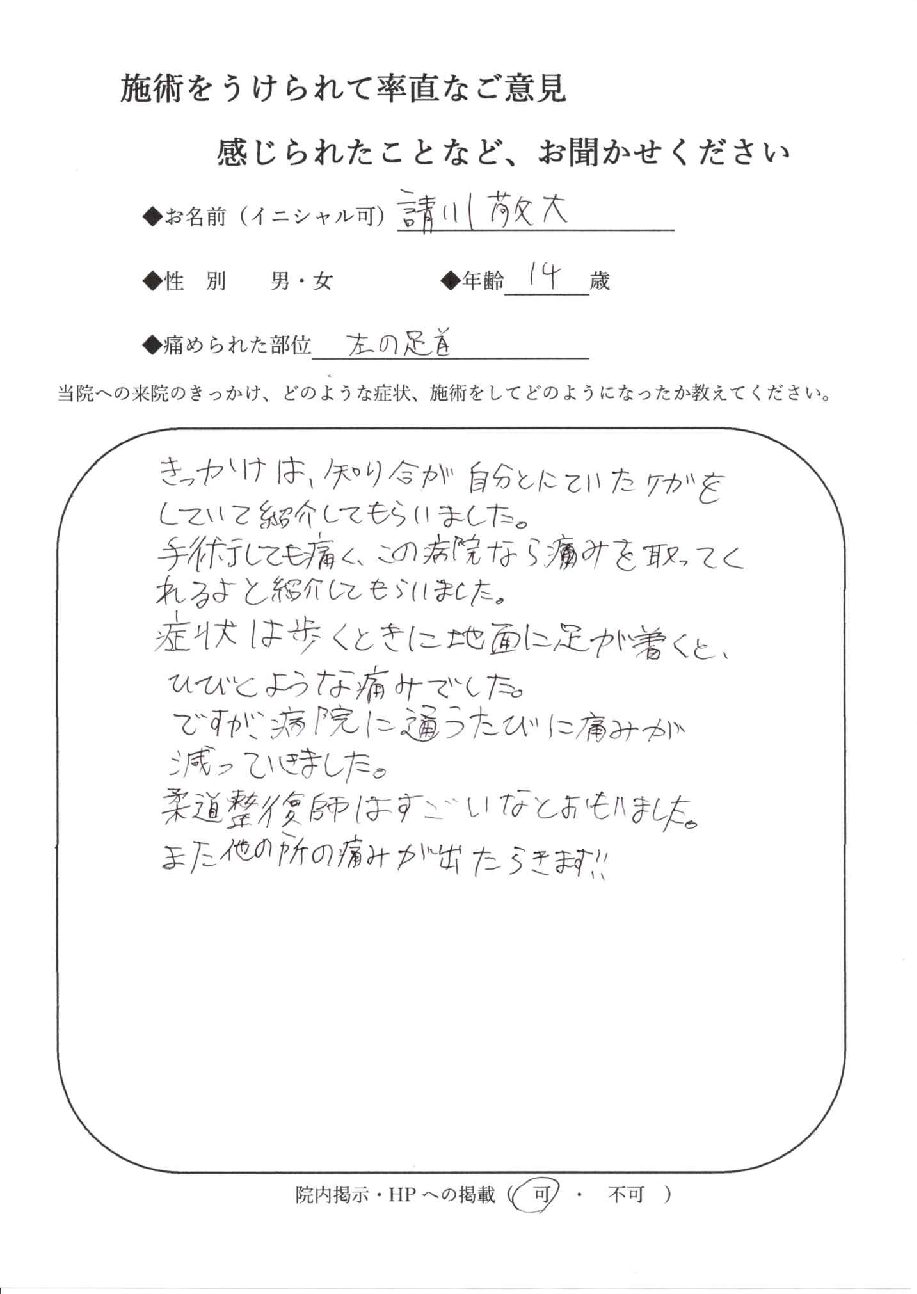 施術をうけられて率直なご意見
感じられたことなど、お聞かせください
◆お名前（イニシャル可）請川敬大
◆性　別　　男・女　　◆年齢 14 歳
◆痛められた部位 左の足首
当院への来院のきっかけ、どのような症状、施術をしてどのようになったか教えてください。
きっかけは、知り合が自分とにていたケガを
していて紹介してもらいました。
手術しても痛く、この病院なら痛みを取ってく
れるよと紹介してもらいました。
症状は歩くときに地面に足が着くと、
ひびくような痛みでした。
ですが、病院に通うたびに痛みが
減っていきました。
柔道整復師はすごいなとおもいました。
また他の所の痛みが出たらきます!!
院内掲示・HPへの掲載（ 可 ・ 不可 ）